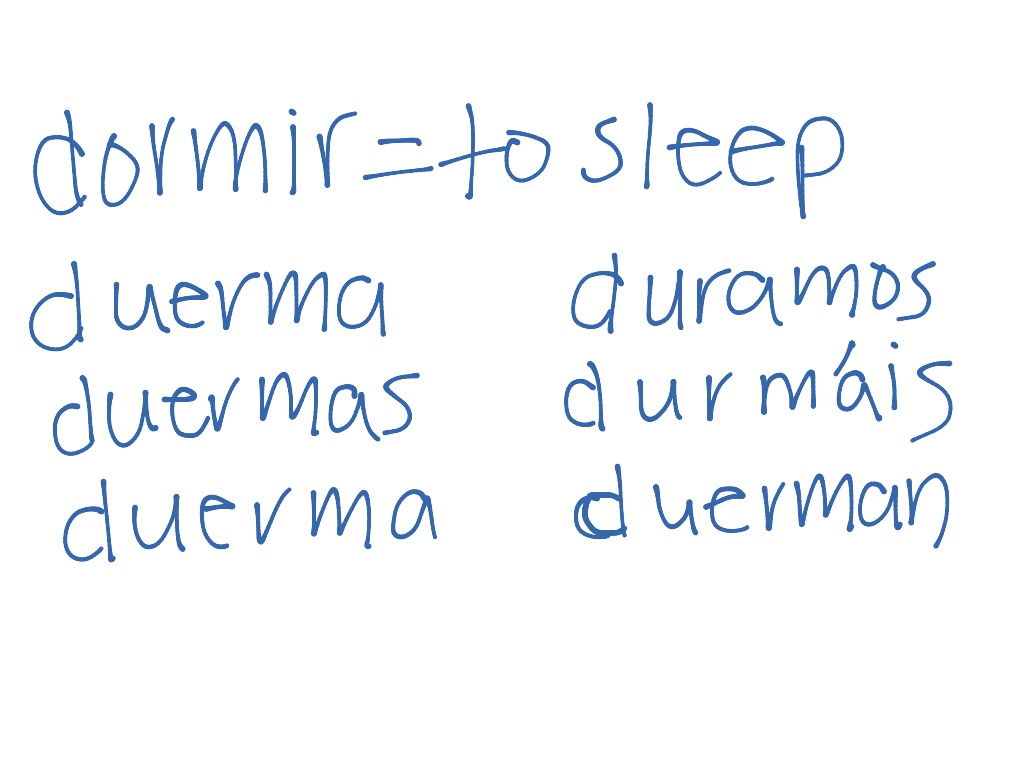 dormir = to sleep
duerma duramos
duermas durmáis
duerma duerman